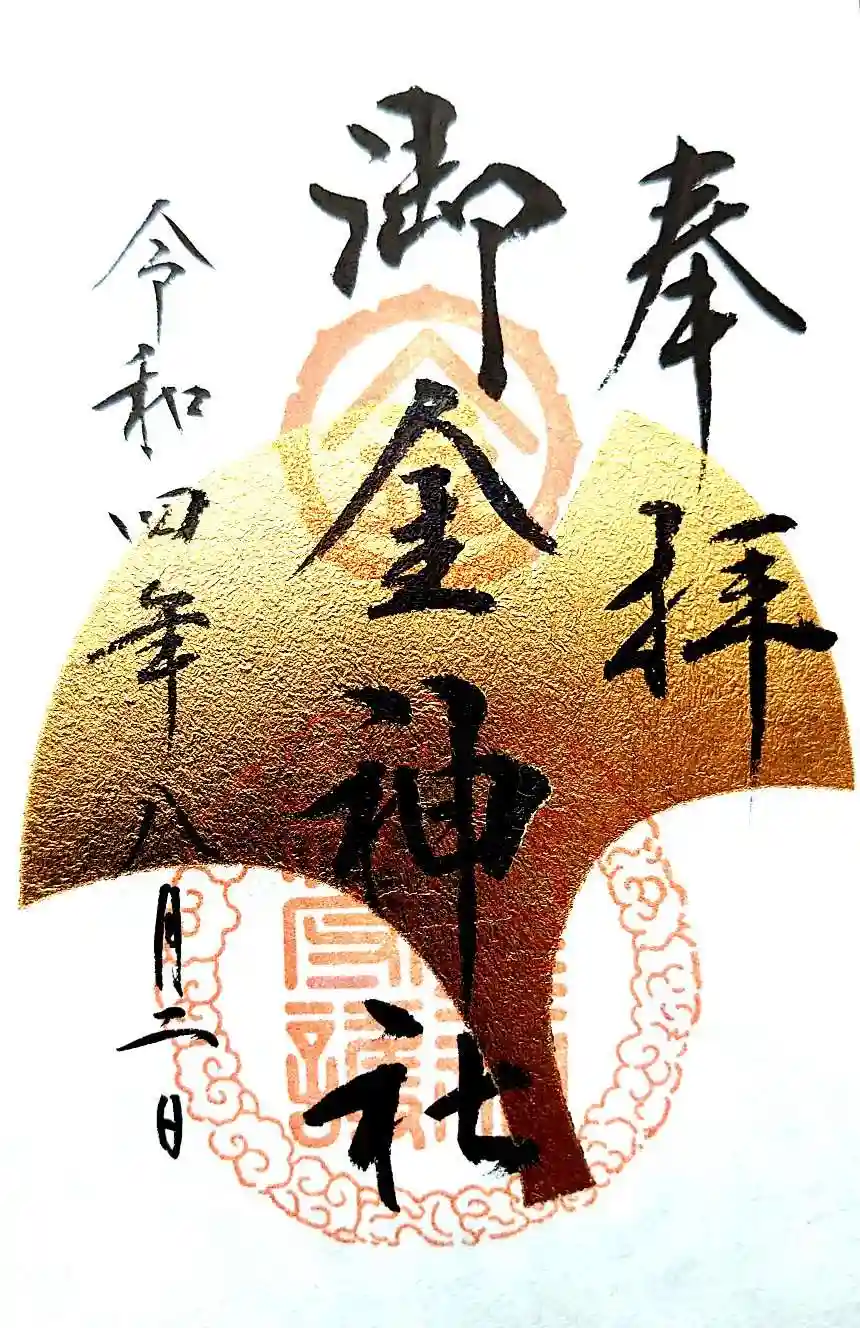 奉拝
御金神社
令和四年八月二日